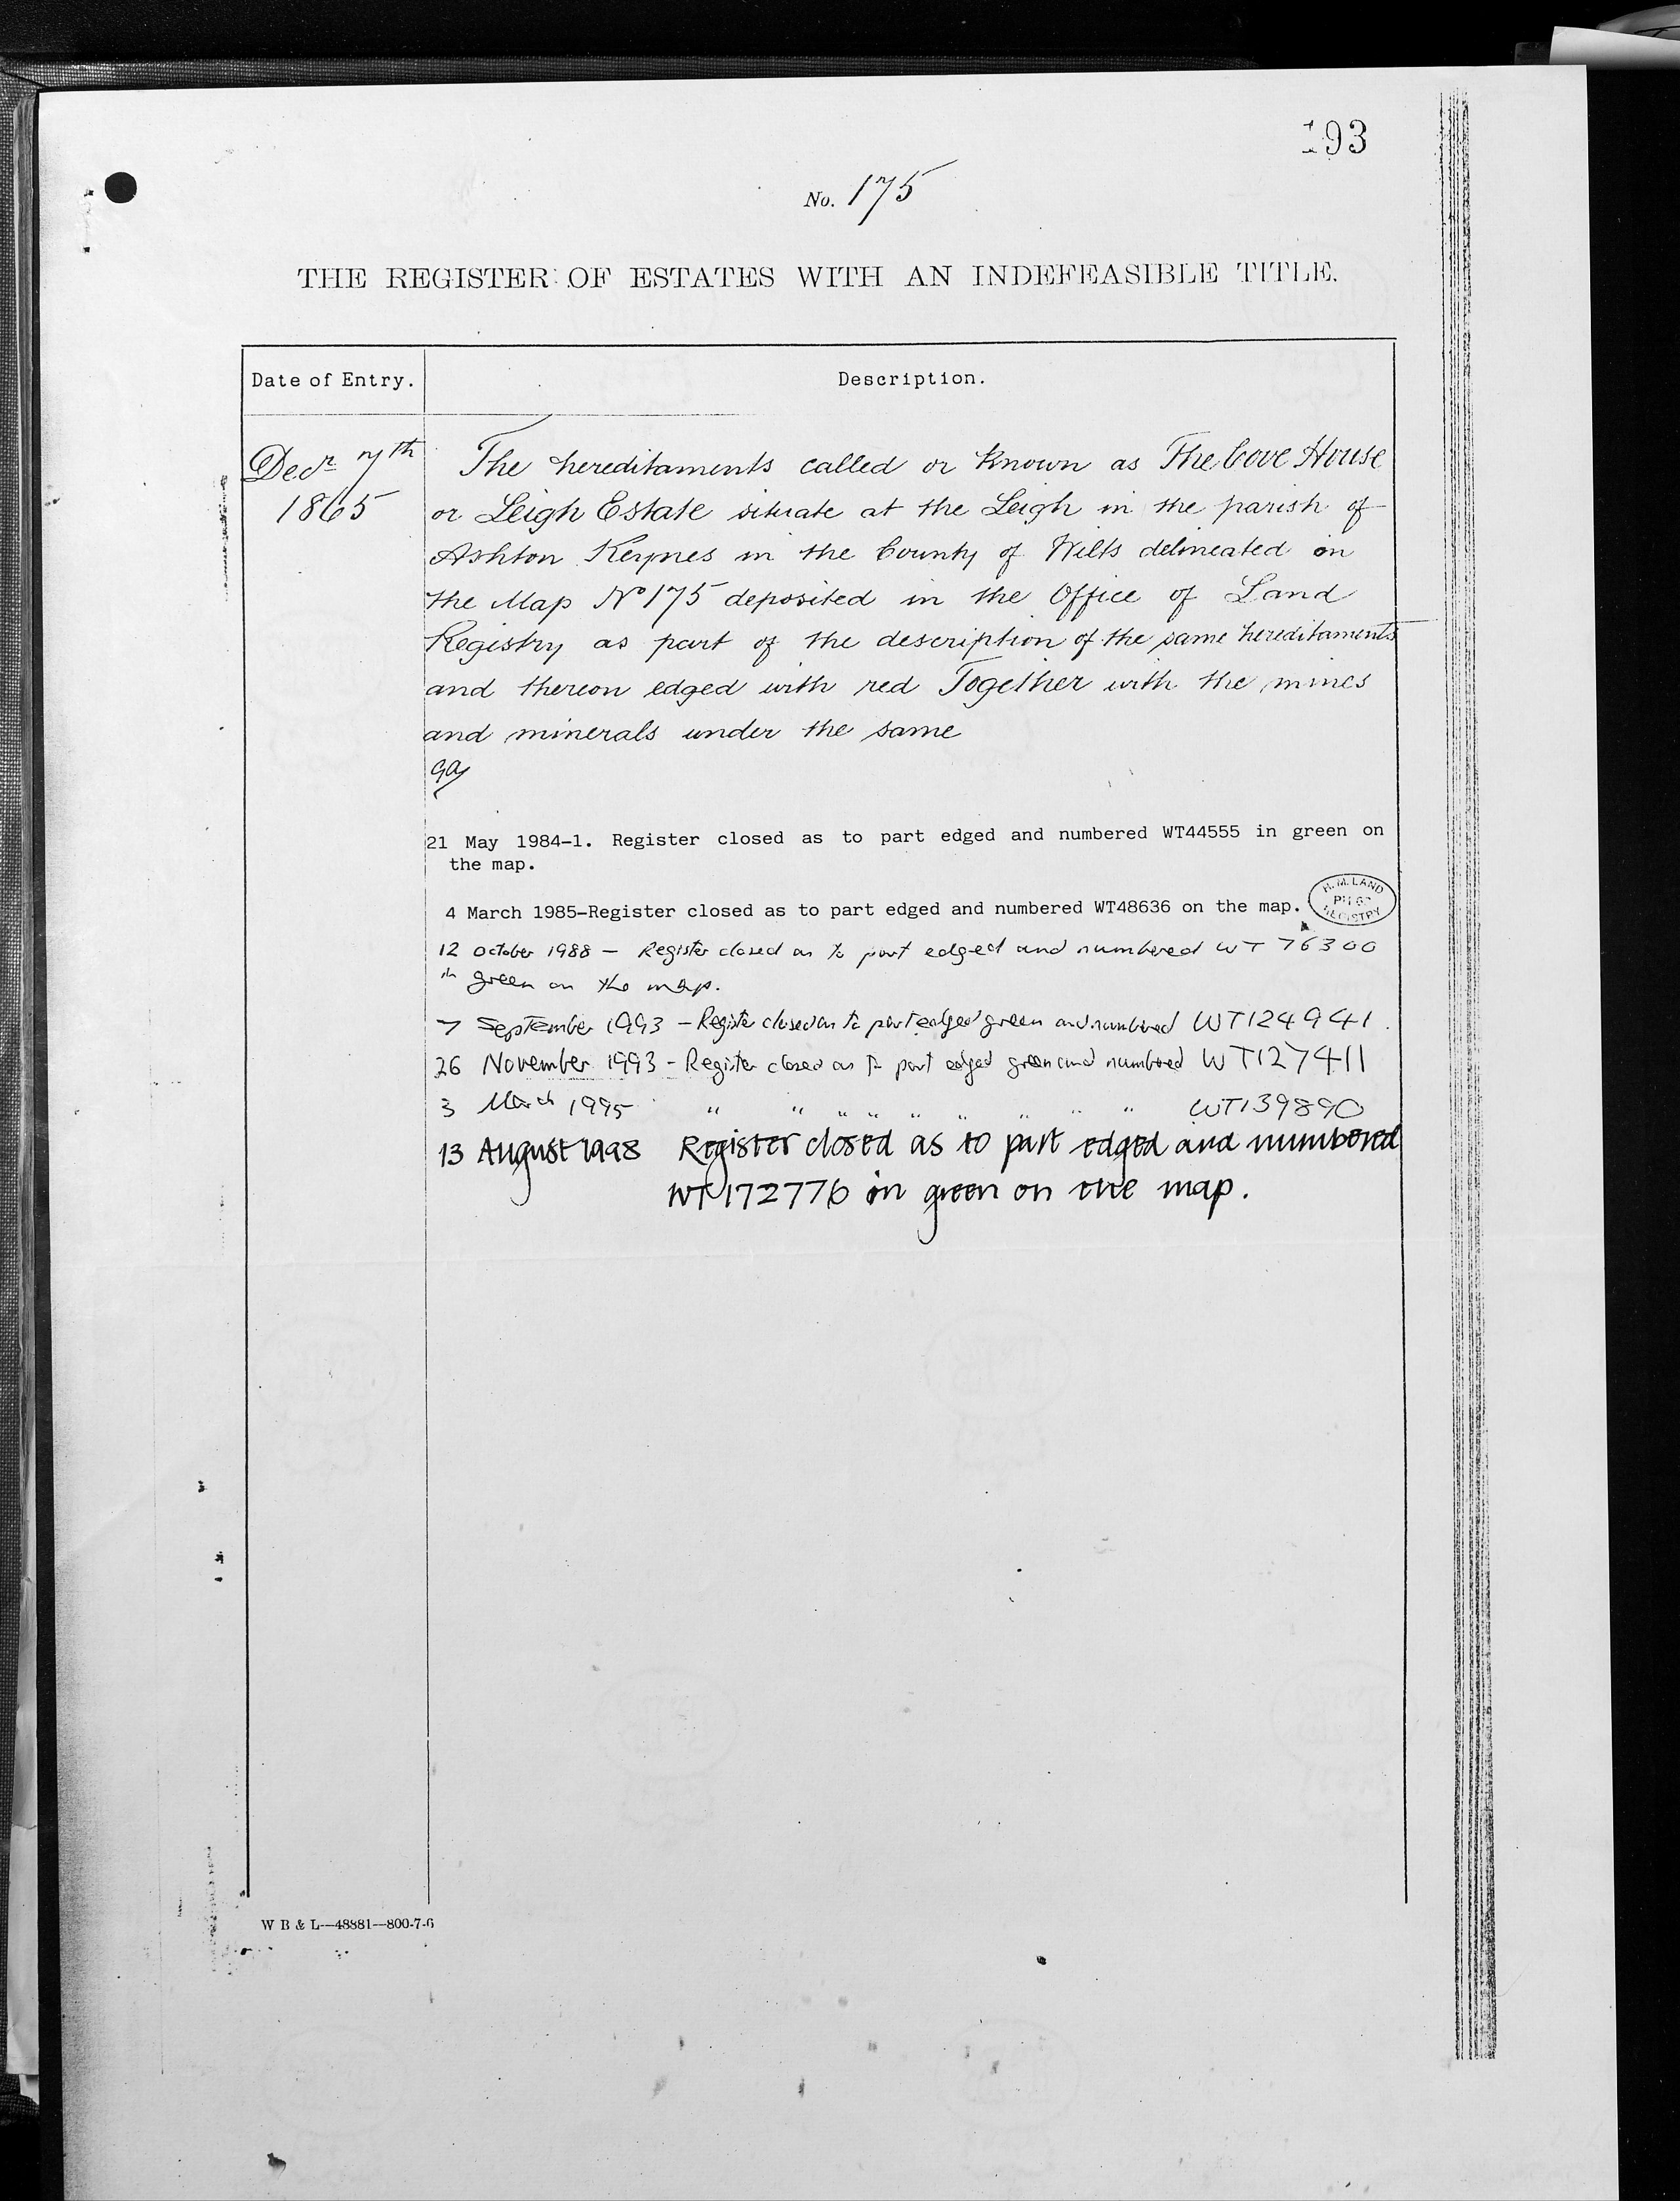 193
No. 175
THE REGISTER OF ESTATES WITH AN INDEFEASIBLE TITLE.
Date of Entry.
Description.
Decr 7th
1865
The hereditaments called or known as The Cove House
or Leigh Estate situate at the Leigh in the parish of
Ashton Keynes in the County of Wilts delineated on
the Map No 175 deposited in the Office of Land
Registry as part of the description of the same hereditaments
and thereon edged with red Together with the mines
and minerals under the same
21 May 1984-1. Register closed as to part edged and numbered WT44555 in green on
the map.
4 March 1985-Register closed as to part edged and numbered WT48636 on the map.
H.M. LAND
REGISTRY
12 October 1988 - Register closed as to part edged and numbered WT 76300
in green on the map.
7 September 1993 - Register closed as to part edged green and numbered WT124941.
26 November 1993 - Register closed as to part edged green and numbered WT127411
3 March 1995 " " " " " " " " " WT139890
13 August 1998 Register closed as to part edged and numbered
WT 172776 in green on the map.
W B & L—48881—800-7-6